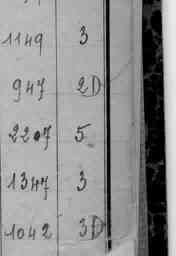 1149 3
947 2D
2207 5
1347 3
1042 3D